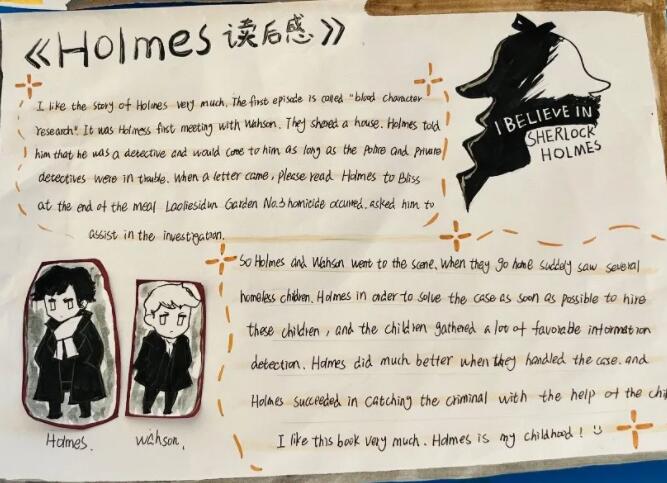 《Holmes 读后感》
I like the story of Holmes very much. The first episode is called "blood character
research". It was Holmess first meeting with Wahson. They shared a house. Holmes told
him that he was a detective and would come to him as long as the Police and private
detectives were in trouble. When a letter came, please read Holmes to Bliss
at the end of the meal Laoliesidun Garden No.3 homicide occurred. asked him to
assist in the investigation.
I BELIEVE IN
SHERLOCK
HOLMES
So Holmes and Wahson went to the scene. When they go home suddely saw several
homeless children. Holmes in order to solve the case as soon as possible to hire
these children, and the children gathered a lot of favorable information
detection. Holmes did much better when they handled the case. and
Holmes succeeded in catching the criminal with the help of the chi
I like this book very much. Holmes is my childhood!
Holmes.
Wahson.